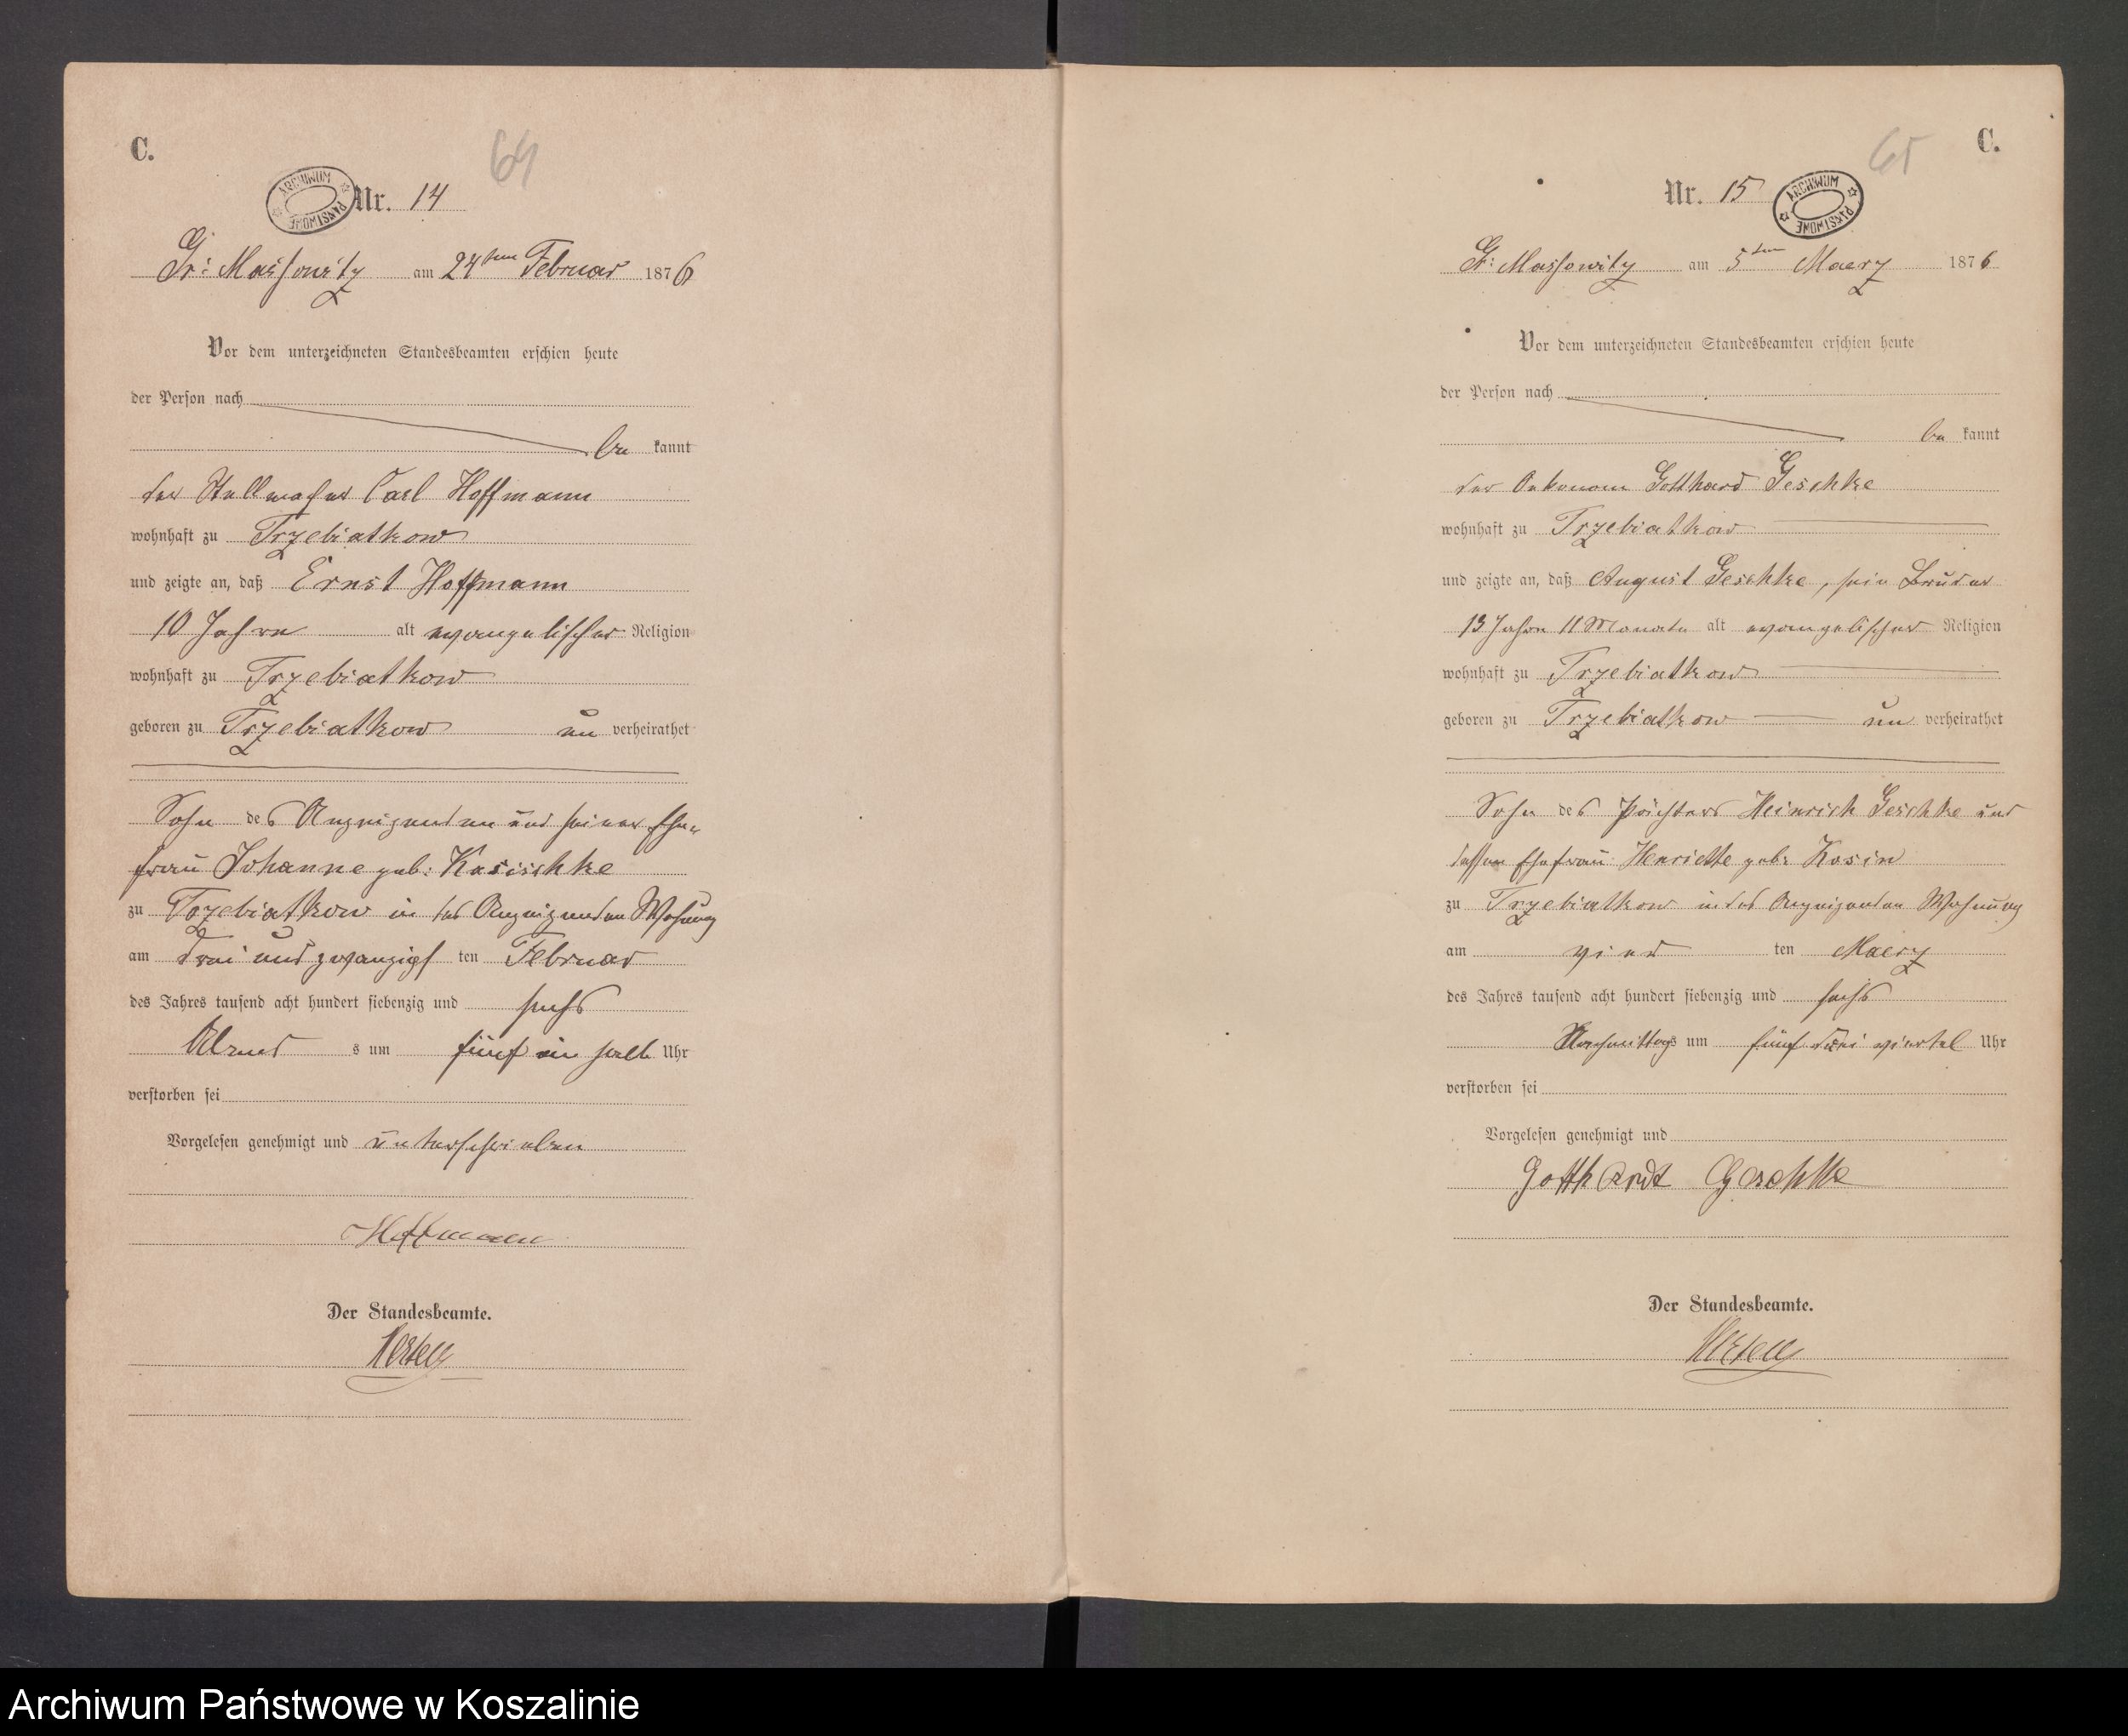 C.
64
ARCHIWUM PAŃSTWOWE
Nr. 14
Gr: Massowitz am 24ten Februar 1876
Vor dem unterzeichneten Standesbeamten erschien heute
der Person nach
be kannt
der Stellmacher Carl Hoffmann
wohnhaft zu Trzebiatkow
und zeigte an, daß Ernst Hoffmann
10 Jahre alt evangelischer Religion
wohnhaft zu Trzebiatkow
geboren zu Trzebiatkow un verheirathet
Sohn des Anzeigenden und seiner Ehe-
frau Johanne geb: Kasischke
zu Trzebiatkow in des Anzeigenden Wohnung
am drei und zwanzigs ten Februar
des Jahres tausend acht hundert siebenzig und sechs
Abend s um fünf ein halb Uhr
verstorben sei
Vorgelesen genehmigt und unterschrieben
Hoffmann
Der Standesbeamte.
C.
65
Nr. 15
ARCHIWUM PAŃSTWOWE
Gr: Massowitz am 5ten Maerz 1876
Vor dem unterzeichneten Standesbeamten erschien heute
der Person nach
be kannt
der Oekonom Gotthard Geschke
wohnhaft zu Trzebiatkow
und zeigte an, daß August Geschke, sein Bruder
13 Jahre 11 Monate alt evangelischer Religion
wohnhaft zu Trzebiatkow
geboren zu Trzebiatkow un verheirathet
Sohn des Pächters Heinrich Geschke und
dessen Ehefrau Henriette geb: Kosin
zu Trzebiatkow in des Anzeigenden Wohnung
am vier ten Maerz
des Jahres tausend acht hundert siebenzig und sechs
Nachmittags um fünf drei viertel Uhr
verstorben sei
Vorgelesen genehmigt und
Gotthardt Geschke
Der Standesbeamte.
Archiwum Państwowe w Koszalinie